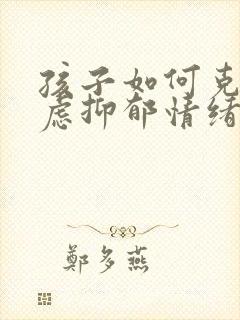 孩子如何克
虑抑郁情绪
鄭多燕